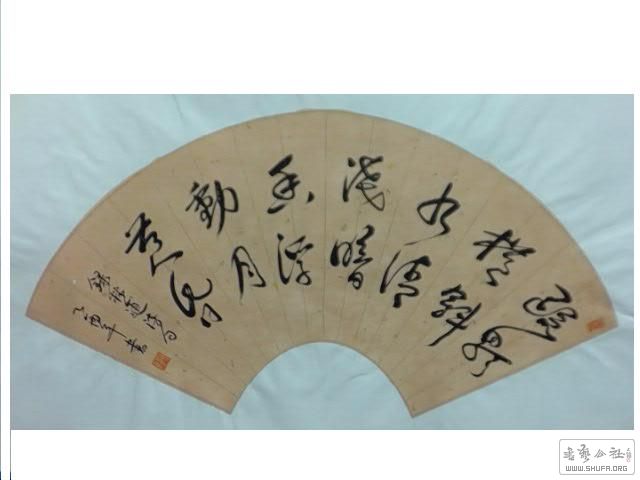 疏影
横斜
水清
浅暗
香浮
動月
黄昏
錄林逋诗句
乙酉年書
书艺公社
WWW.SHUFA.ORG